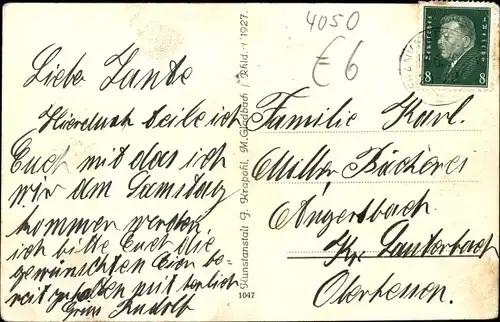 4050
€ 6
Deutsches Reich
8 8
Liebe Tante
Hierdurch teile ich
Euch mit das ich
wir am Samstag
kommen werden,
ich bitte Euch die
gewünschten Eier be-
reit zu halten mit herlich
Gruss Rudolf
Kunstanstalt J. Krapohl, M.Gladbach / Rhld. 1927.
1047
Familie Karl.
Müller Bäckerei
Angersbach
Krs Lauterbach
Oberhessen.